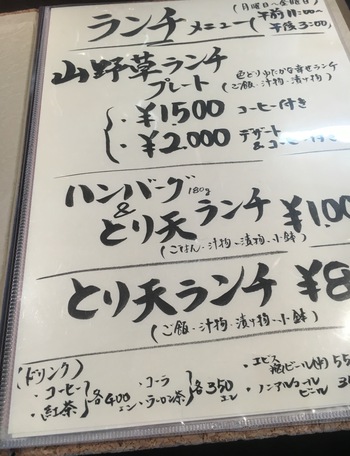 (月曜日〜金曜日)
ランチメニュー (午前11:00〜
午後3:00)
山野草ランチ
プレート
色とりゆたかな幸せランチ
(ご飯・汁物・漬け物)
・¥1500 コーヒー付き
・¥2,000 デザート
&コーヒー付き
ハンバーグ 180g
&
とり天ランチ ¥1,00
(ごはん・汁物・漬物・小鉢)
とり天ランチ ¥8
(ご飯・汁物・漬け物・小鉢)
(ドリンク)
・コーヒー
・紅茶
各400エン
・コーラ
・ウーロン茶
各350エン
・エビス
瓶ビール(中) 55
・ノンアルコール
ビール 3